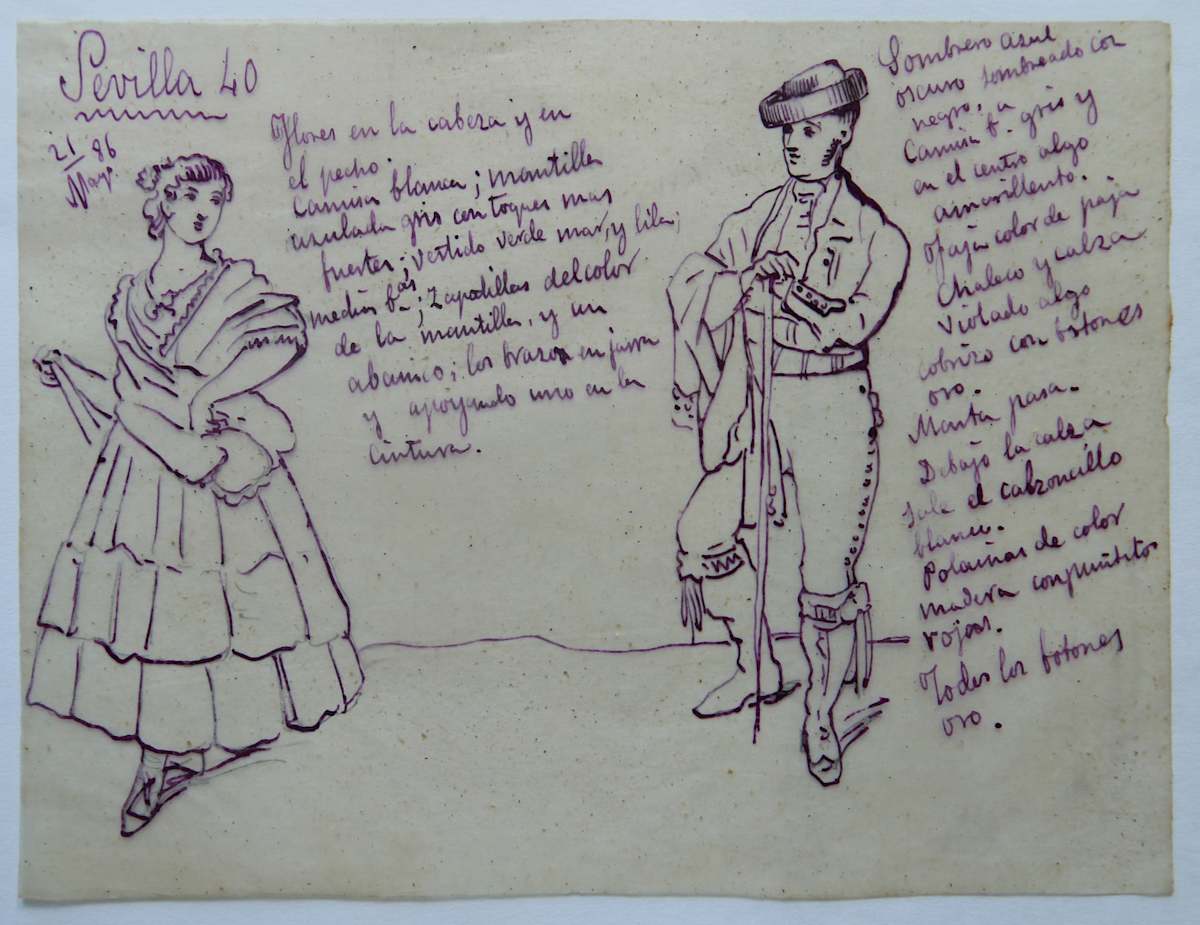 Sevilla 40
21 / May. 86
Flores en la cabeza y en
el pecho.
Camisa blanca; mantilla
azulada gris con toques mas
fuertes; vestido verde mar, y lila;
medias b.as; zapatillas del color
de la mantilla, y un
abanico; los brazos en jarra
y apoyando uno en la
cintura.
Sombrero azul
oscuro sombreado con
negro.
Camisa b.a gris y
en el centro algo
amarillento.
Faja color de paja
Chaleco y calza
violado algo
cobrizo con botones
oro.
Manta pasa.
Debajo la calza
sale el calzoncillo
blanco.
Polainas de color
madera con puntitos
rojos.
Todos los botones
oro.